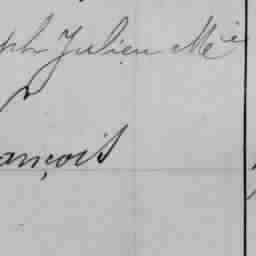 ph Julien Mie
ançois